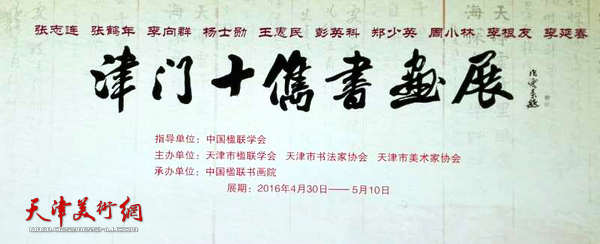 张志连 张鹤年 李向群 杨士勋 王惠民 彭英科 郑少英 周小林 李根友 李延春
津门十儁書畫展
指导单位：中国楹联学会
主办单位：天津市楹联学会 天津市书法家协会 天津市美术家协会
承办单位：中国楹联书画院
展期：2016年4月30日——5月10日
天津美術網